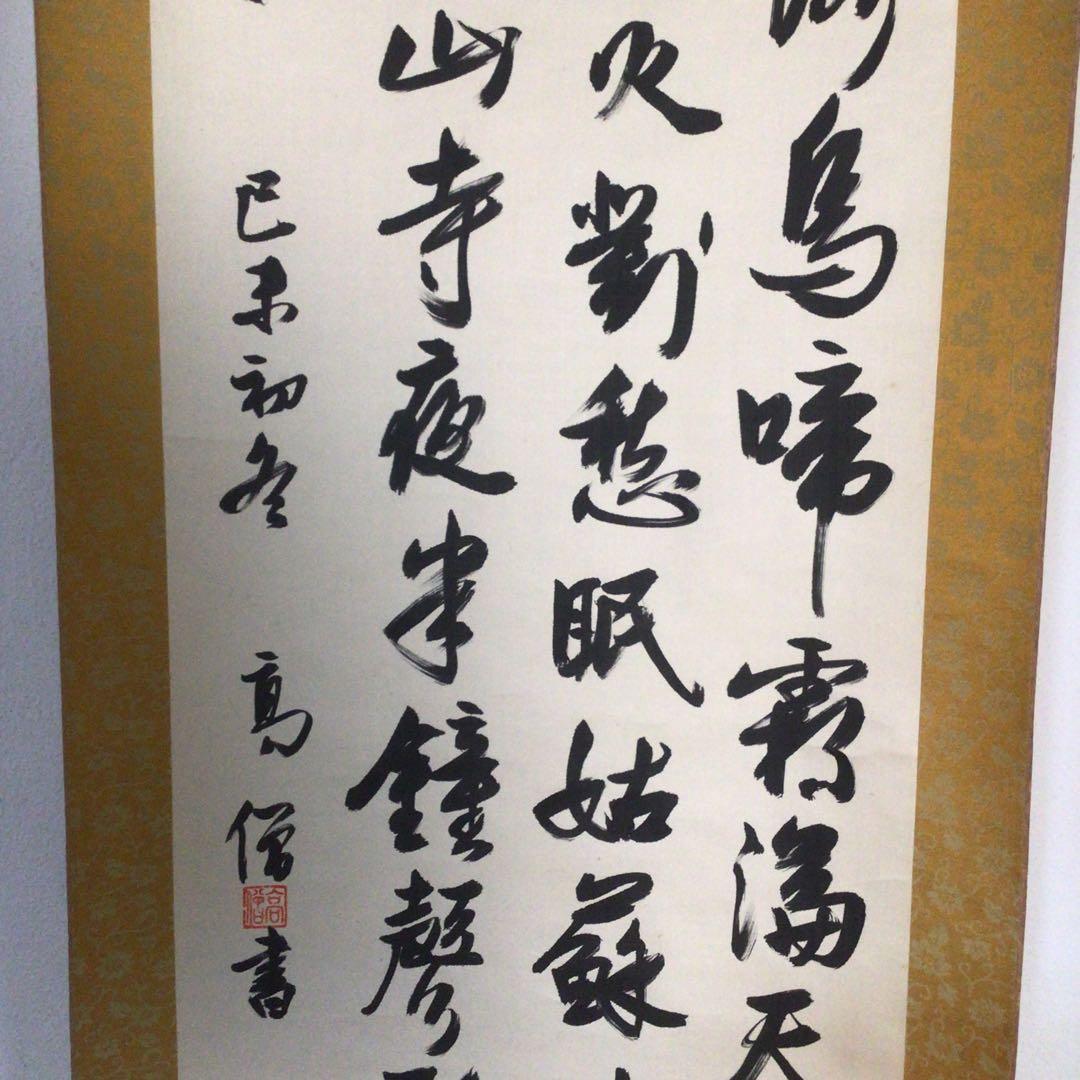 烏啼霜滿天
火對愁眠姑蘇
山寺夜半鐘聲
己未初冬 高僧書